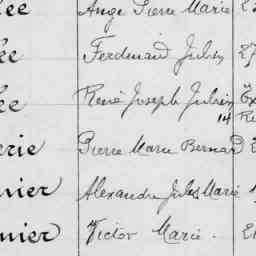 ée Ange Pierre Marie
ée Ferdinand Julien 27
ée René Joseph Julien
14
erie Pierre Marie Bernard
nier Alexandre Jules Marie
nier Victor Marie.